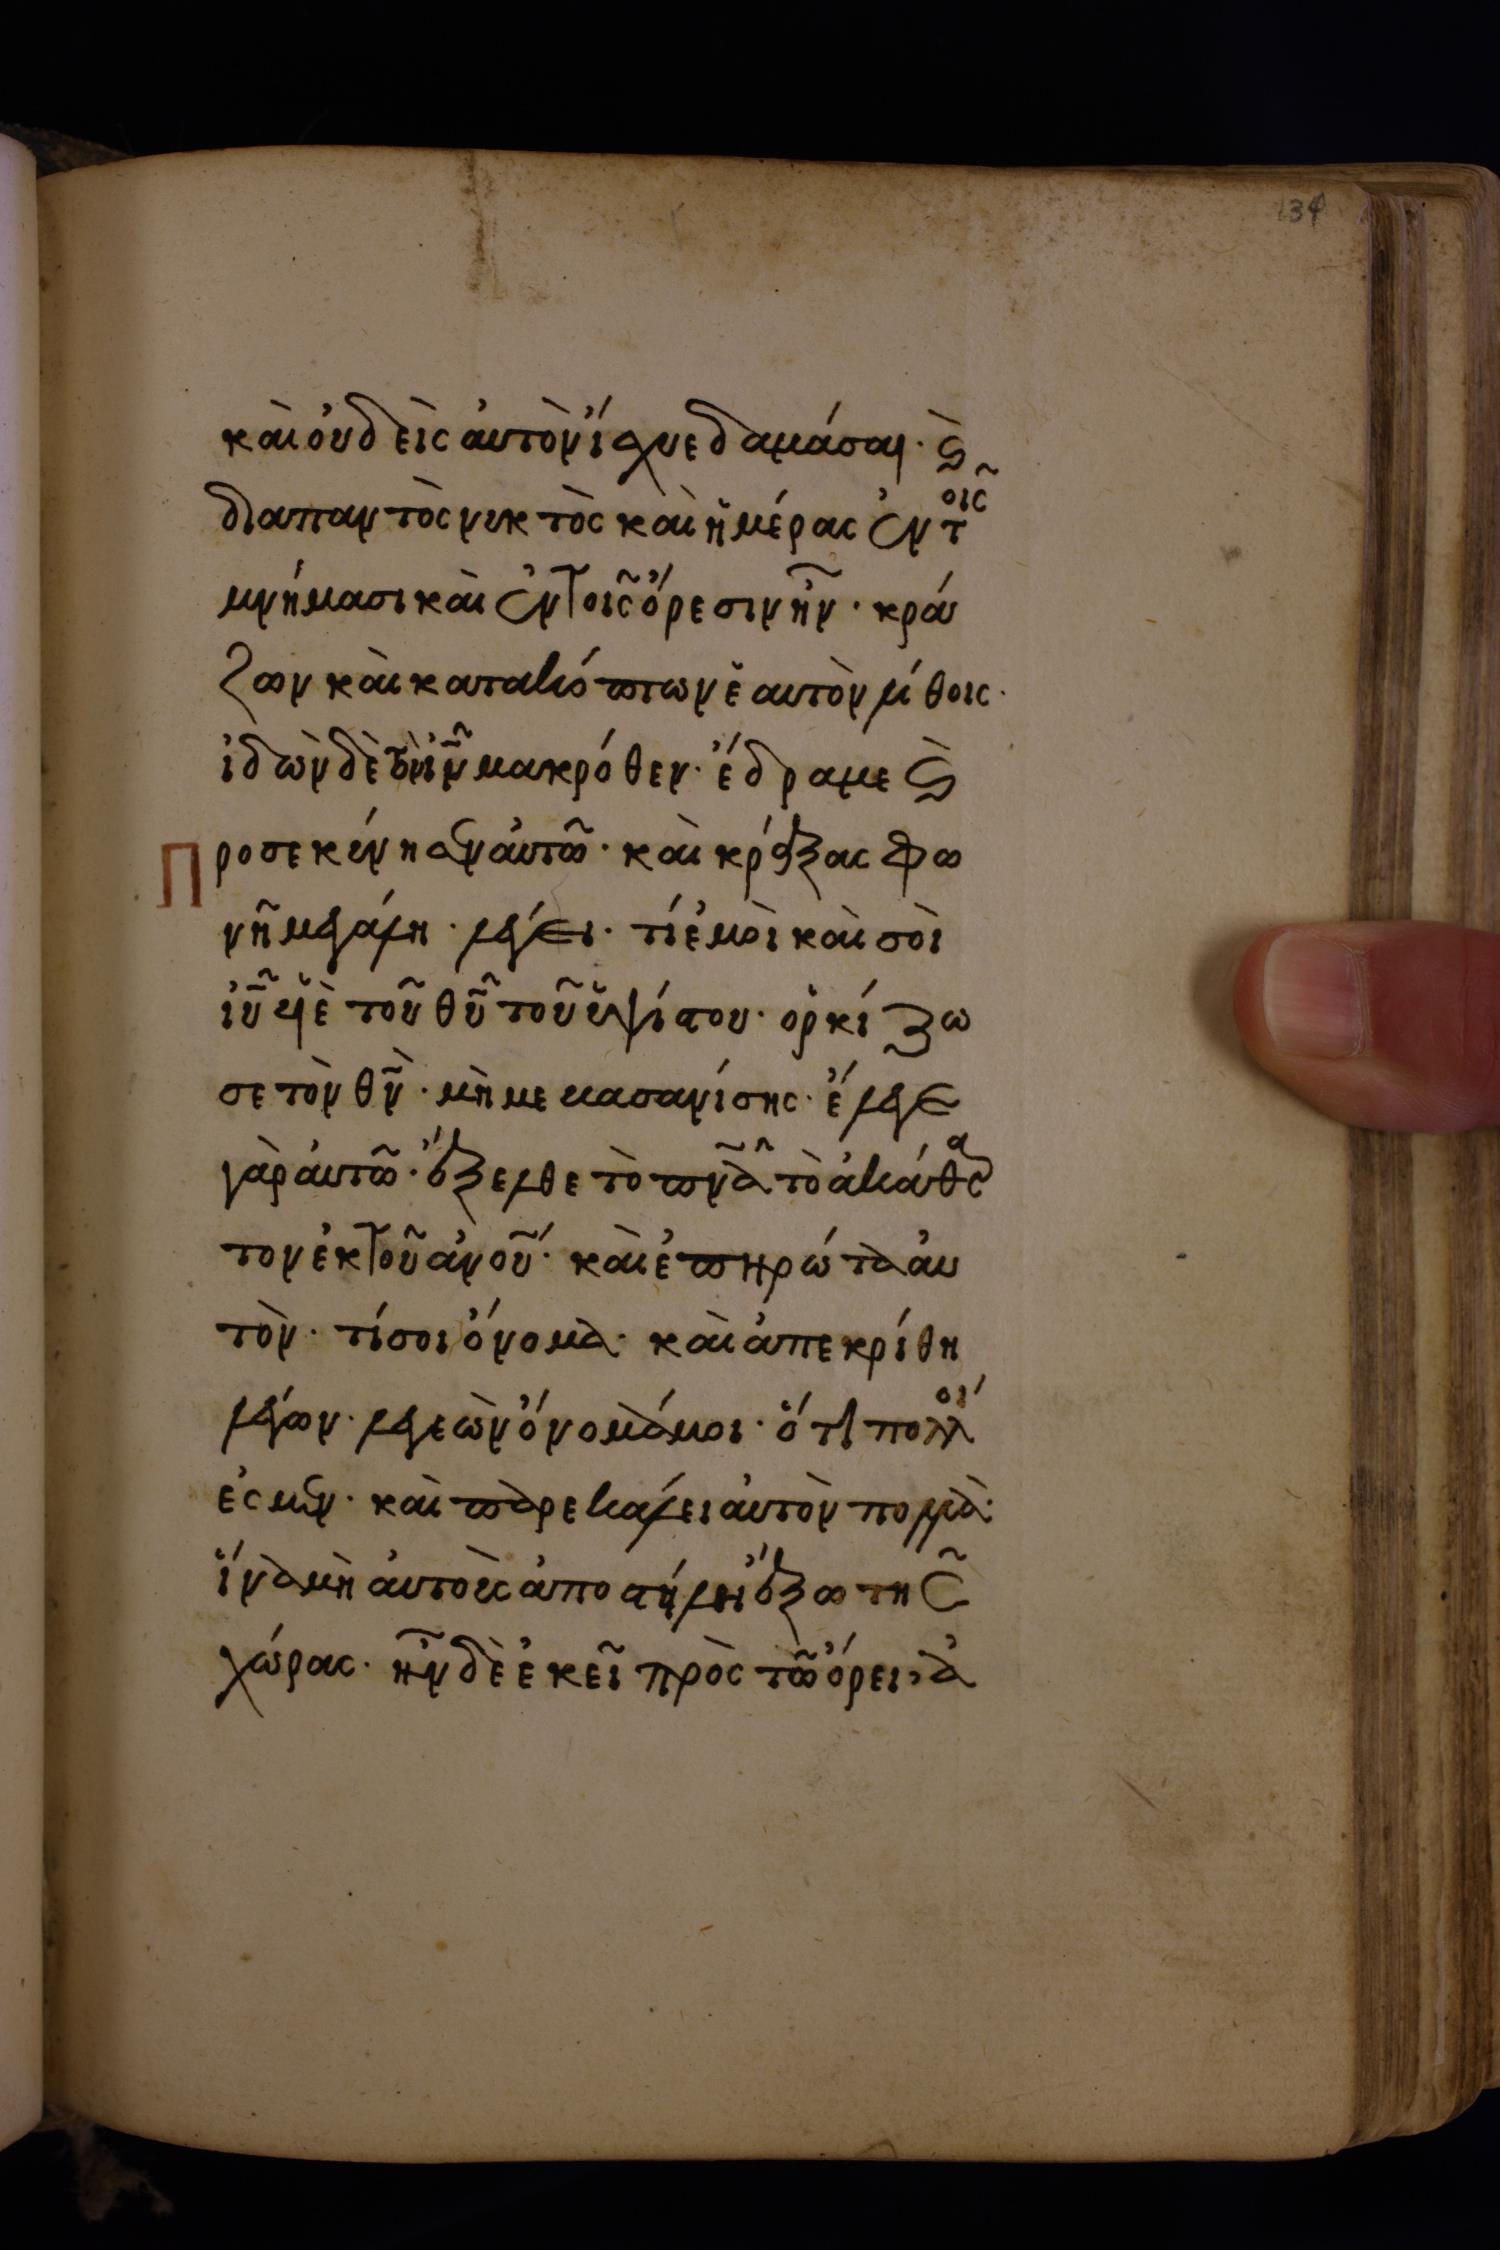 134
καὶ οὐδεὶς αὐτὸν ἴσχυε δαμάσαι· ϗ
διαπαντὸς νυκτὸς καὶ ἡμέρας ἐν τοῖς
μνήμασι καὶ ἐν τοῖς ὄρεσιν ἦν· κρά
ζων καὶ κατακόπτων ἑαυτὸν λίθοις·
ἰδὼν δὲ τὸν ιν μακρόθεν· ἔδραμε ϗ
Προσεκύνησεν αὐτῶ· καὶ κράξας φω
νῆ μεγάλη· λέγει· τί ἐμοὶ καὶ σοὶ
ιυ υἱὲ τοῦ θυ τοῦ ὑψίστου· ὁρκίζω
σε τὸν θν· μή με βασανίσης· ἔλεγε
γὰρ αὐτῶ· ἔξελθε τὸ πνα τὸ ἀκάθαρ
τον ἐκ τοῦ ανου· καὶ ἐπηρώτα αὐ
τὸν· τί σοι ὄνομα· καὶ ἀπεκρίθη
λέγων· λεγεὼν ὄνομά μοι· ὅτι πολλοί
ἐσμεν· καὶ παρεκάλει αὐτὸν πολλὰ·
ἵνα μὴ αὐτοὺς ἀποστείλη ἔξω τῆς
χώρας· ἦν δὲ ἐκεῖ πρὸς τῶ ὄρει, ἀ